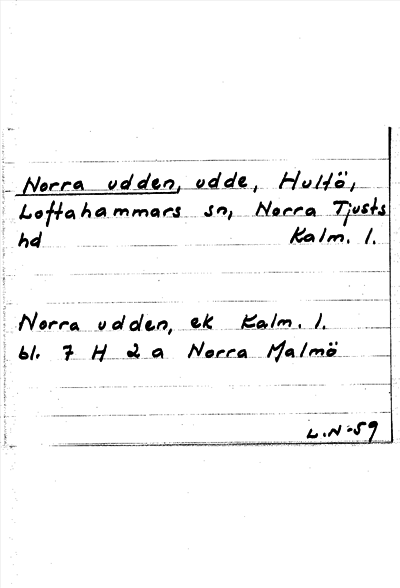 Norra udden, udde, Hultö,
Loftahammars sn, Norra Tjusts
hd Kalm. l.
Norra udden, ek Kalm. l.
bl. 7 H 2 a Norra Malmö
L.N-59